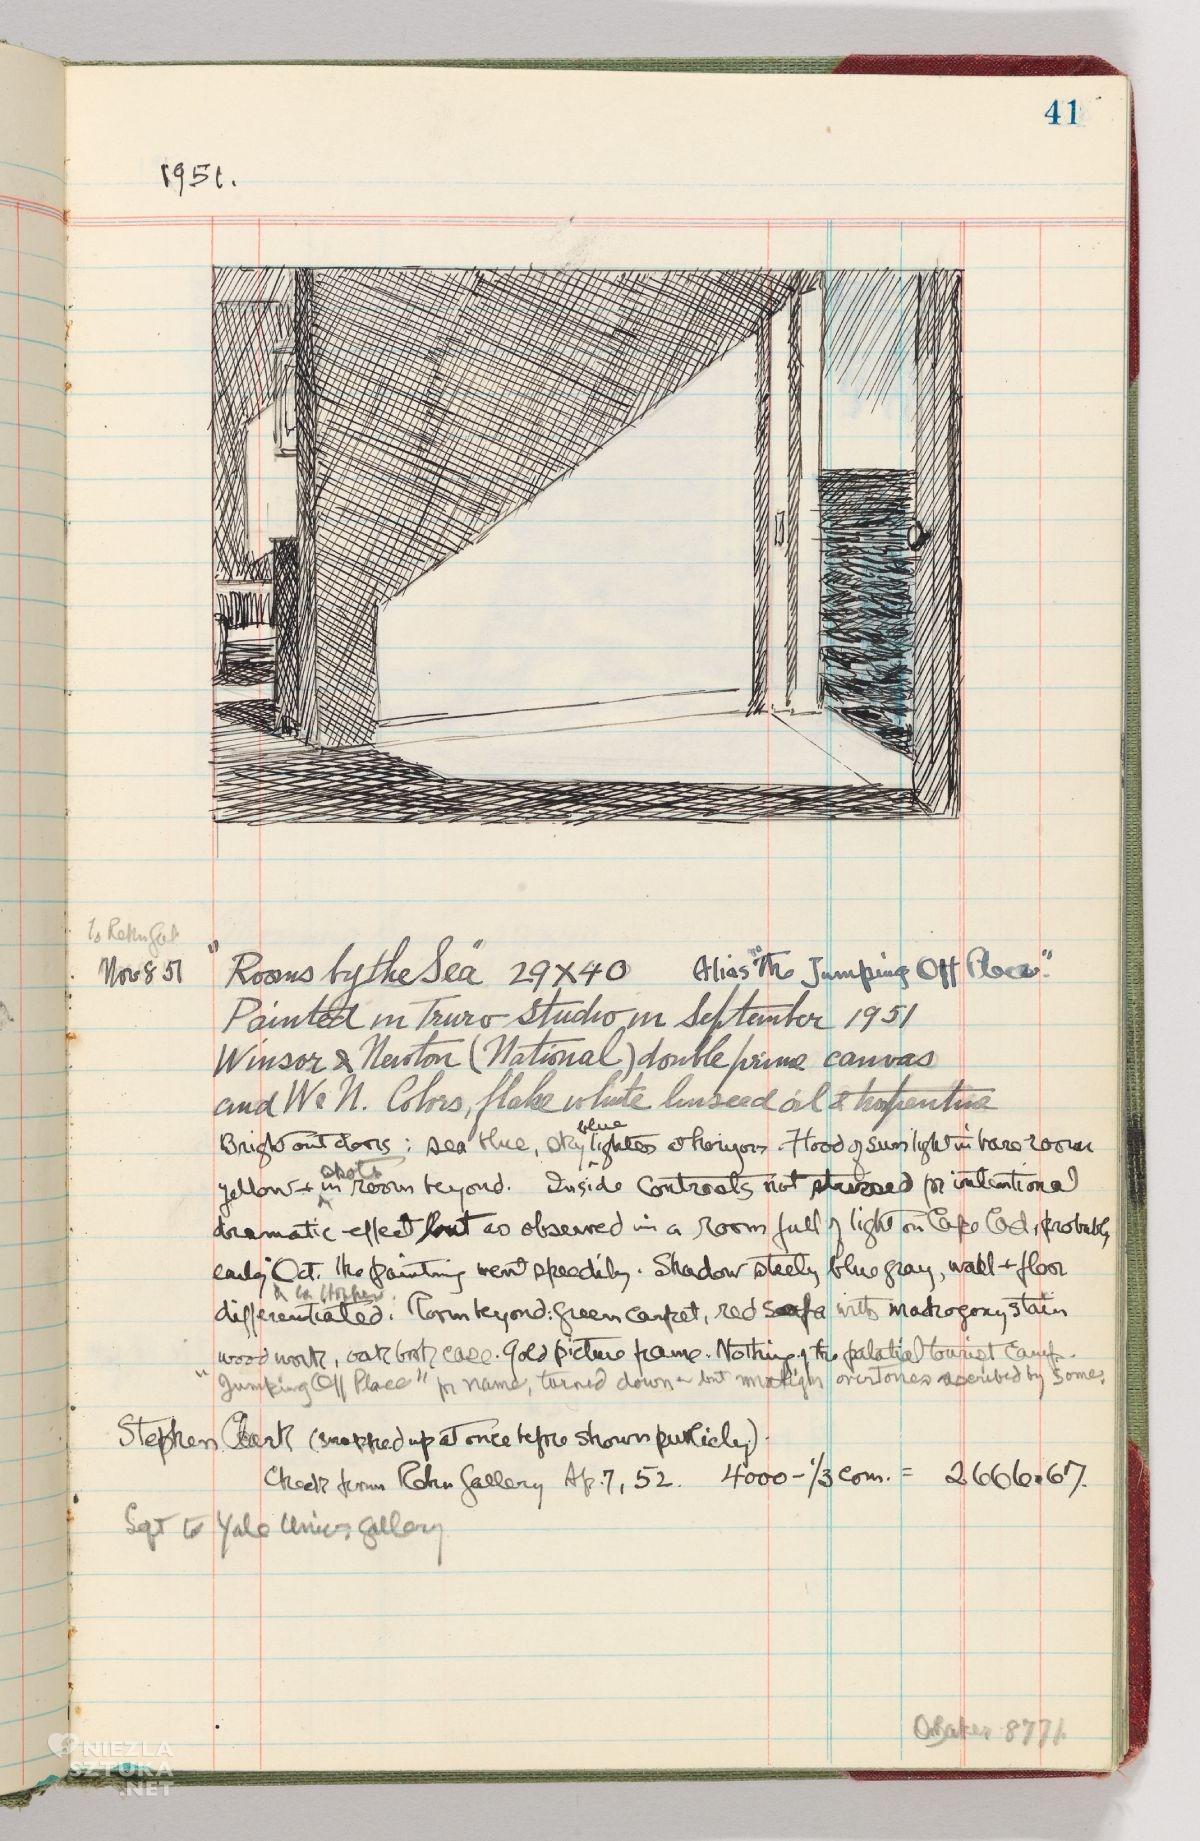 41
1951.
To Rehn Gal
Nov 8 51 "Rooms by the Sea" 29X40 Alias "The Jumping Off Place".
Painted in Truro studio in September 1951
Winsor & Newton (National) double prime canvas
and W & N. Colors, flake white linseed oil & turpentine
Bright out doors: sea blue, sky blue lighter at horizon. Flood of sun light in bare room
yellow + in spots room beyond. Inside Contrasts not stressed for intentional
dramatic effect but as observed in a room full of light on Cape Cod, probably
early Oct. The painting went speedily. Shadow steely blue gray, wall + floor
differentiated. Room beyond: green carpet, red sofa with mahogony stain
wood work, oak book case. Gold picture frame. Nothing of the palatial tourist camp.
"Jumping Off Place" for name, turned down - but malign overtones ascribed by some.
Stephen Clark (snapped up at once before shown publicly).
Check from Rehn Gallery Ap. 7, 52. 4000 - 1/3 com. = 2666.67.
to Yale Univ. Gallery
O. Baker 8771.
NIEZLA
SZTUKA
.NET